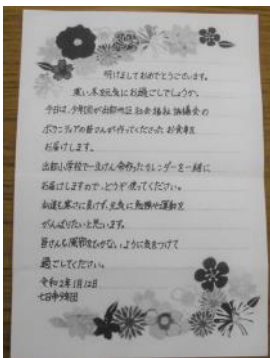 明けましておめでとうございます。
寒い冬を元気にお過ごしでしょうか。
今日は、少年団が出部地区社会福祉協議会の
ボランティアの皆さんが作ってくださったお食事を
お届けします。
出部小学校で一生けん命作ったカレンダーを一緒に
お届けしますので、どうぞ使ってください。
私達も寒さに負けず、元気に勉強や運動を
がんばりたいと思います。
皆さんも風邪をひかないように気をつけて
過ごしてください。
令和2年1月12日
七日市少年団